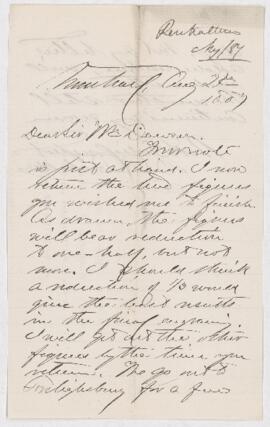 Aug/87
Montreal, Aug 2
1887
Dear Sir Wm Dawson.
Your note
is just at hand. I now
return the two figures
you wished me to finish
as drawn, the figures
will bear reduction
to one-half, but not
more. I should think
a reduction of 1/3 would
give the best results
in the final engraving.
I will get at the other
figures by the time you
return. We go out to
for a few